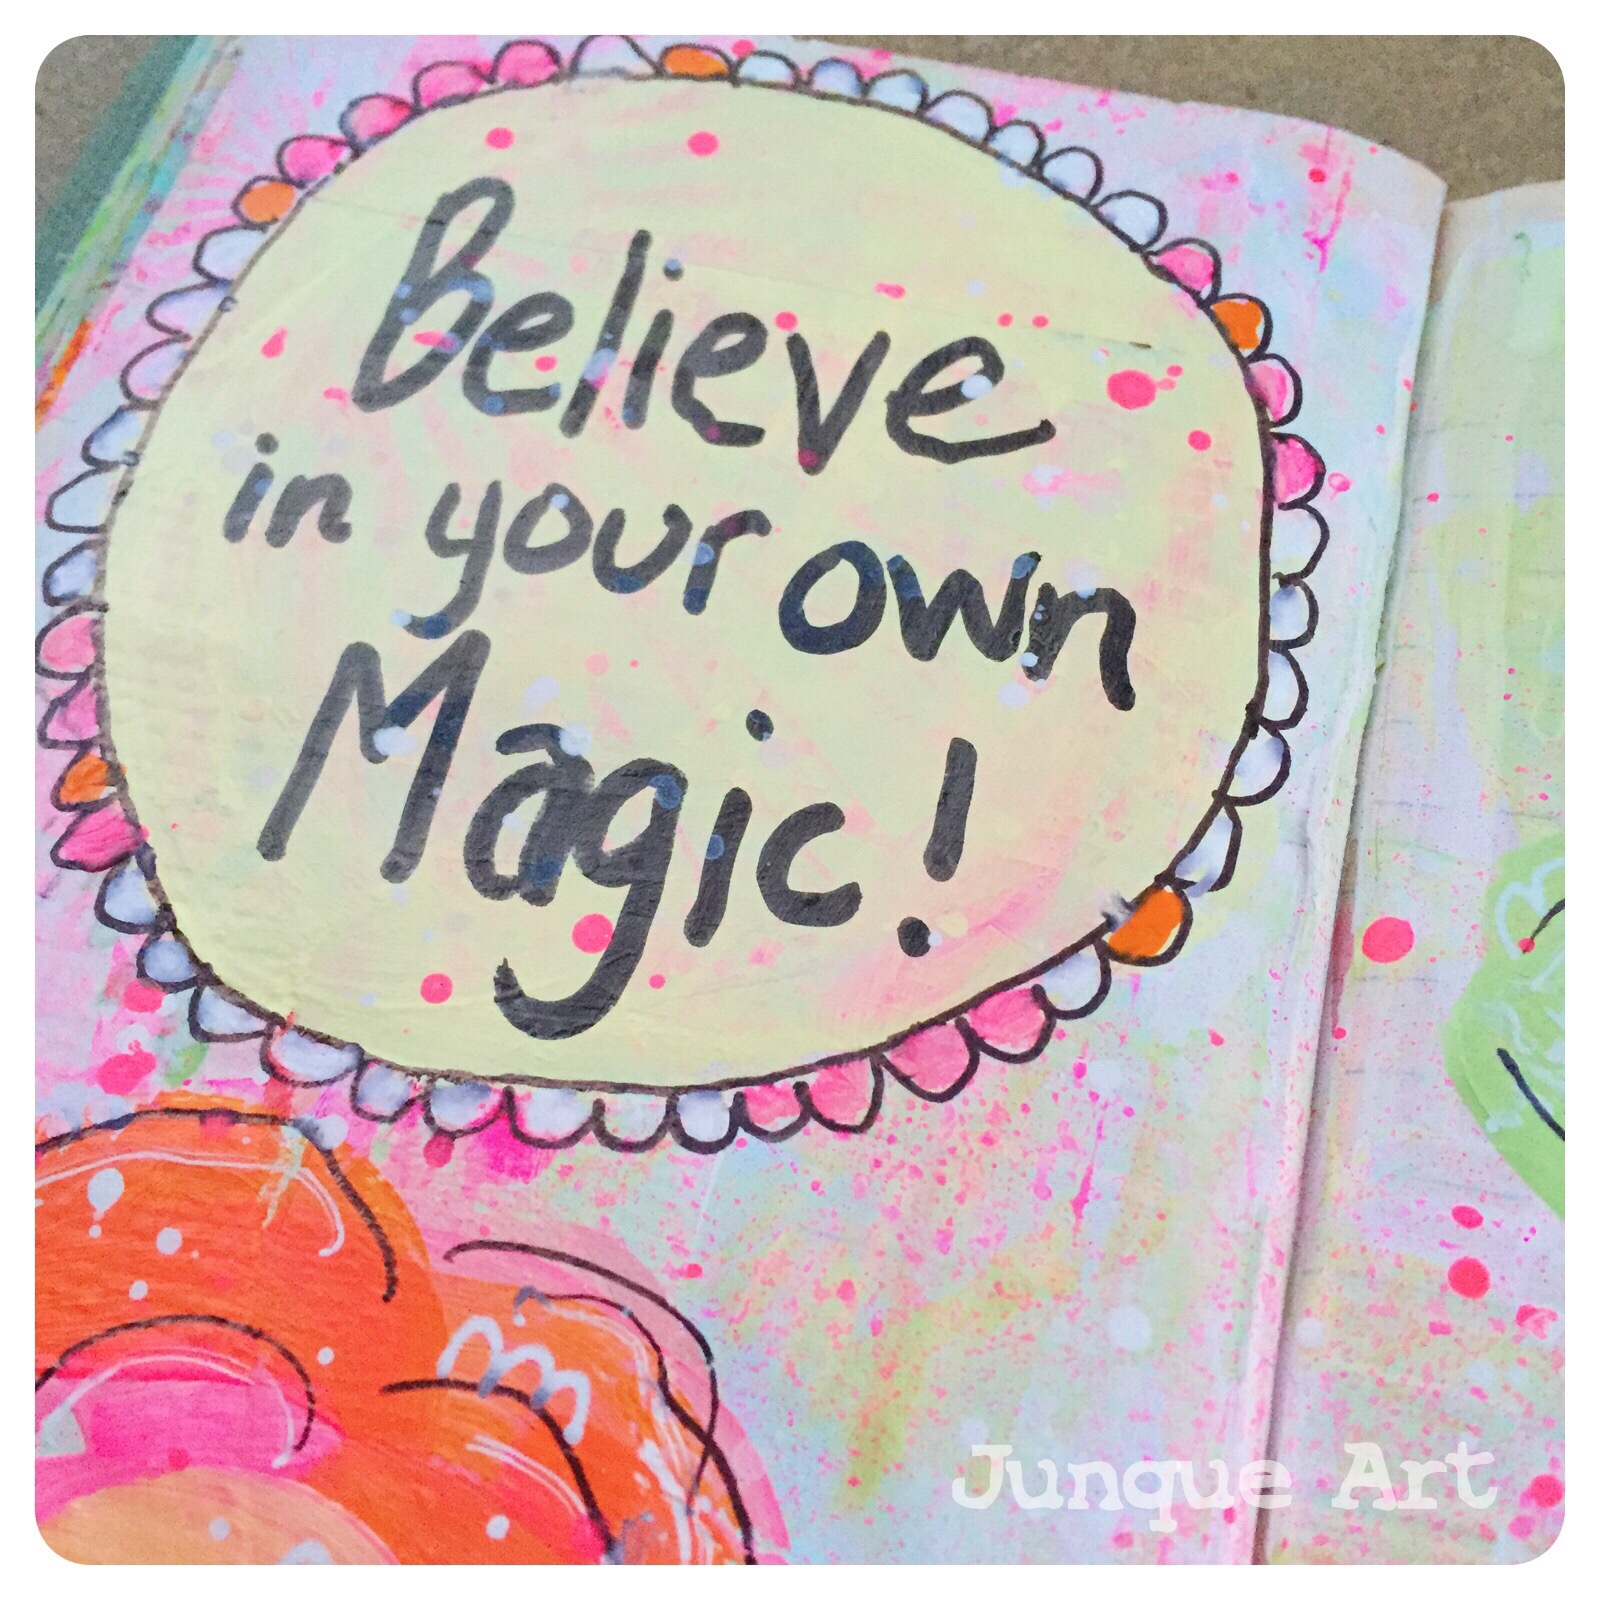 Believe
in your own
Magic!
Junque Art